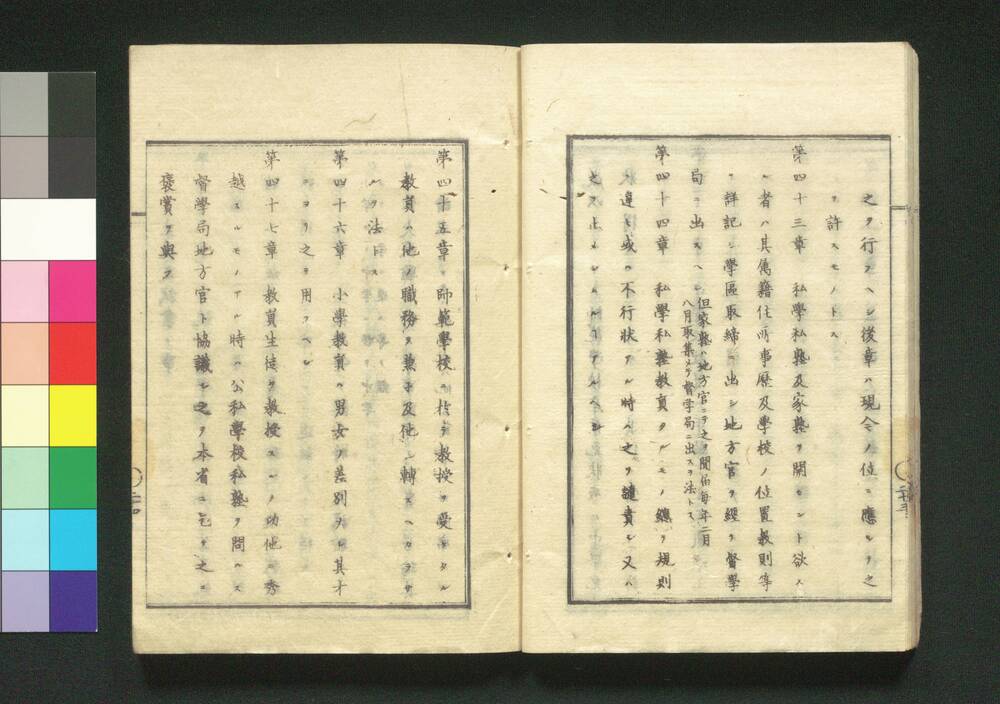 之ヲ行フヘシ後章ハ現今ノ位ニ應シテ之
ヲ許スモノトス
第四十三章 私學私塾及家塾ヲ開カント欲ス
ル者ハ其屬籍住所事歴及學校ノ位置教則等
ヲ詳記シ學區取締ニ出シ地方官ヲ經テ督學
局ニ出スヘシ
但家塾ハ地方官ニテ之ヲ聞届毎年二月
八月取集メテ督学局ニ出スヲ法トス
第四十四章 私學私塾教員タルモノ總テ規則
ニ違ヒ或ハ不行状アル時ハ之ヲ譴責シ又ハ
之ヲ止メシムルコアルヘシ
第四十五章 師範學校ニ於テ教授ヲ受ケタル
教員ハ他ノ職務ヲ兼子及他ニ轉スヘカラサ
ルヲ法トス
第四十六章 小學教員ハ男女ヲ差別ナシ其才
ニヨリ之ヲ用フヘシ
第四十七章 教員生徒ヲ教授スルノ功他ニ秀
越スルモノアル時ハ公私學校私塾ヲ問ハス
督學局地方官ト協議シ之ヲ本省ニ乞ヒ之ニ
褒賞ヲ與フ